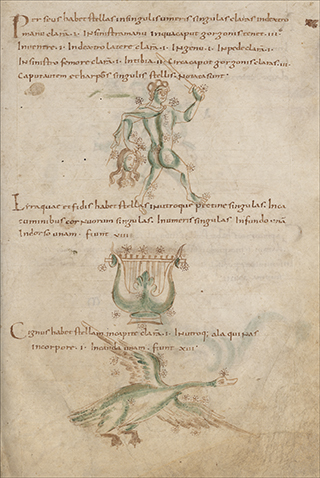 Perseus habet stellas in singulis umeris singulas claras. Indextro
manu clarā · I · Insinistra manu in qua caput gorgonis tenet · III ·
Inventre · I · Indextro latere clarā · I · Ingenu · I · Inpede clarā · I ·
Insinistro femore clarā · I · Intibia · II · Circa caput gorgonis claras · III
Caput autem et harpe singulis stellis
Lyra quae et fidis habet stellas Inutroque pectine singulas. Inca
cuminibus cornuorum singulas. Inumeris singulas. Infundo unā
Indorso unam. Fiunt VIIII
Cignus habet stellam incapite clarā · I · Inutroq; ala quinas
incorpore · I · Incauda unam · Fiunt XIII